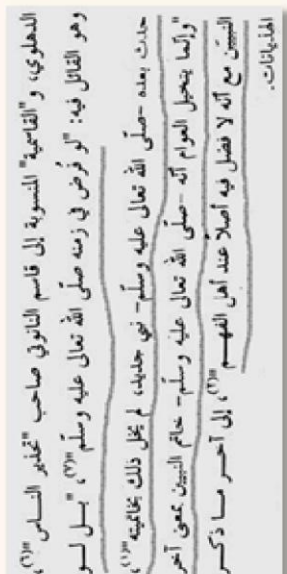 الدهلوي، و"القاسمية" المنسوبة إلى قاسم النانوتي صاحب "تحذير الناس"(٦)،
وهو القائل فيه: "لو فُرض في زمنه صلّى الله تعالى عليه وسلّم"(٧)، "بــل لــو
حدث بعده -صلّى الله تعالى عليه وسلّم- نبي جديد، لم يخل ذلك بخاتميته"(١)،
"وإنّما يتخيل العوام أنّه -صلّى الله تعالى عليه وسلّم- خاتم النبيين بمعنى آخر
النبيّين مع أنّه لا فضل فيه أصلاً عند أهل الفهــم"(٢)، إلى آخــر مــا ذكــر
الهذيانات.